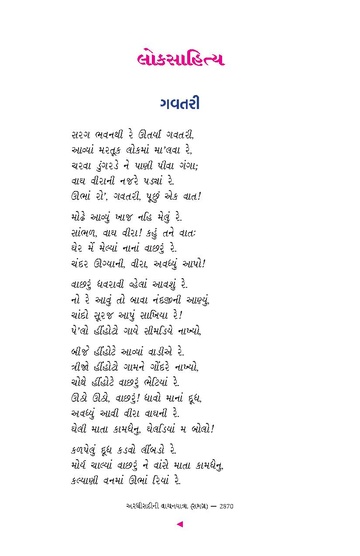 લોકસાહિત્ય
ગવતરી
સરગ ભવનથી રે ઊતર્યાં ગવતરી,
આવ્યાં મરતૂક લોકમાં મા'લવા રે.
ચરવા ડુંગરડે ને પાણી પીવા ગંગા;
વાઘ વીરાની નજરે પડ્યાં રે.
ઊભાં રો', ગવતરી, પૂછું એક વાત!
મોઢે આવ્યું ખાજ નહિ મેલું રે.
સાંભળ, વાઘ વીરા! કહું તને વાતઃ
ઘેર મેં મેલ્યાં નાનાં વાછરું રે.
ચંદર ઊગ્યાની, વીરા, અવધ્યું આપો!
વાછરું ધવરાવી વ્હેલાં આવશું રે.
નો રે આવું તો બાવા નંદજીની આણ્યું,
ચાંદો સૂરજ આપું સાખિયા રે!
પે'લો હીંહોટો ગાવે સીમડિયે નાખ્યો,
બીજે હીંહોટે આવ્યાં વાડીએ રે.
ત્રીજો હીંહોટો ગામને ગોંદરે નાખ્યો,
ચોથે હીંહોટે વાછરું ભેટિયાં રે.
ઊઠો ઊઠો, વાછરું! ધાવો માનાં દૂધ,
અવધ્યું આવી વીરા વાઘની રે.
ઘેલી માતા કામધેનુ, ઘેલડિયાં મ બોલો!
કળપેલું દૂધ કડવો લીંબડો રે.
મોર્ય ચાલ્યાં વાછરું ને વાંસે માતા કામધેનુ,
કલ્યાણી વનમાં ઊભાં રિયાં રે.
અરધીસદીની વાચનયાત્રા (સમગ્ર) — 2870